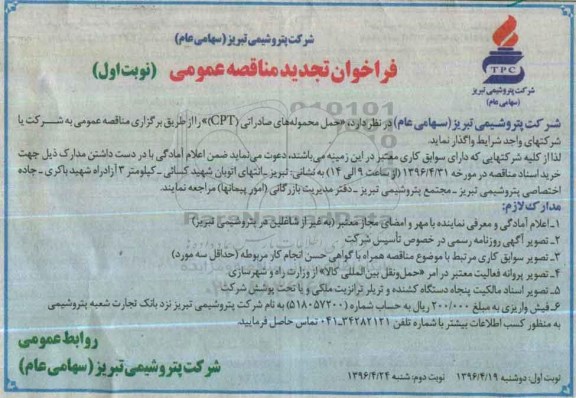 شرکت پتروشیمی تبریز (سهامی عام)
فراخوان تجدید مناقصه عمومی (نوبت اول)
TPC
شرکت پتروشیمی تبریز
(سهامی عام)
شرکت پتروشیمی تبریز (سهامی عام) در نظر دارد، «حمل محموله‌های صادراتی (CPT)» را از طریق برگزاری مناقصه عمومی به شرکت یا
شرکتهای واجد شرایط واگذار نماید.
لذا از کلیه شرکتهایی که دارای سوابق کاری معتبر در این زمینه می‌باشند، دعوت می‌نماید ضمن اعلام آمادگی با در دست داشتن مدارک ذیل جهت
خرید اسناد مناقصه در مورخه ۱۳۹۶/۴/۳۱ (از ساعت ۹ الی ۱۴) به نشانی: تبریز ـ انتهای اتوبان شهید کسائی ـ کیلومتر ۳ آزادراه شهید باکری ـ جاده
اختصاصی پتروشیمی تبریز ـ مجتمع پتروشیمی تبریز ـ دفتر مدیریت بازرگانی (امور پیمانها) مراجعه نمایند.
مدارک لازم:
۱ـ اعلام آمادگی و معرفی نماینده با مهر و امضای مجاز معتبر (به غیر از شاغلین در پتروشیمی تبریز)
۲ـ تصویر آگهی روزنامه رسمی در خصوص تأسیس شرکت
۳ـ تصویر سوابق کاری مرتبط با موضوع مناقصه همراه با گواهی حسن انجام کار مربوطه (حداقل سه مورد)
۴ـ تصویر پروانه فعالیت معتبر در امر «حمل‌ونقل بین‌المللی کالا» از وزارت راه و شهرسازی.
۵ـ تصویر اسناد مالکیت پنجاه دستگاه کشنده و تریلر ترانزیت ملکی و یا تحت پوشش شرکت
۶ـ فیش واریزی به مبلغ ۲۰۰/۰۰۰ ریال به حساب شماره (۵۱۸۰۵۷۲۰۰) به نام شرکت پتروشیمی تبریز نزد بانک تجارت شعبه پتروشیمی
به منظور کسب اطلاعات بیشتر با شماره تلفن ۳۴۲۸۲۱۲۱ـ۰۴۱ تماس حاصل فرمایید.
روابط عمومی
شرکت پتروشیمی تبریز (سهامی عام)
نوبت اول: دوشنبه ۱۳۹۶/۴/۱۹ نوبت دوم: شنبه ۱۳۹۶/۴/۲۴